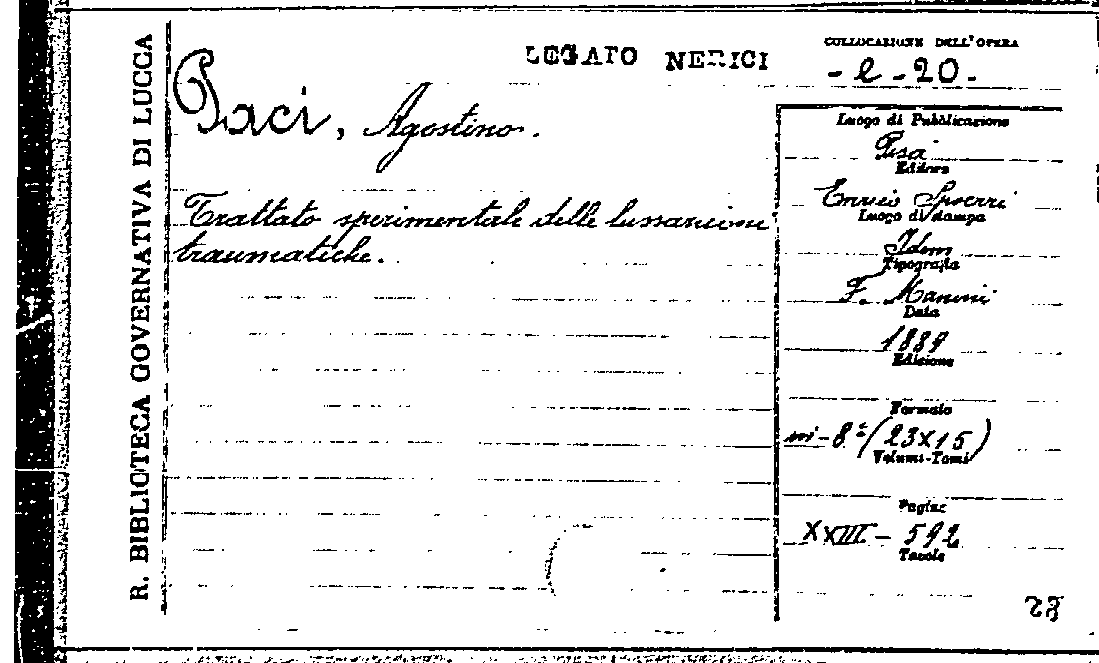 R. BIBLIOTECA GOVERNATIVA DI LUCCA
LEGATO NERICI
COLLOCAZIONE DELL'OPERA
- e - 20 -
Paci, Agostino.
Trattato sperimentale delle lussazioni
traumatiche.
Luogo di Pubblicazione
Pisa
Editore
Enrico Spoerri
Luogo di stampa
Idem
Tipografia
F. Mariotti
Data
1889
Edizione
Formato
in-8° (23x15)
Volumi-Tomi
Pagine
XXIII - 592
Tavole